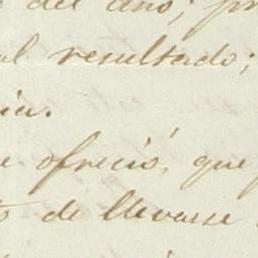 del año; pr
al resultado;
cia.
e ofreció, que
to de llevarse